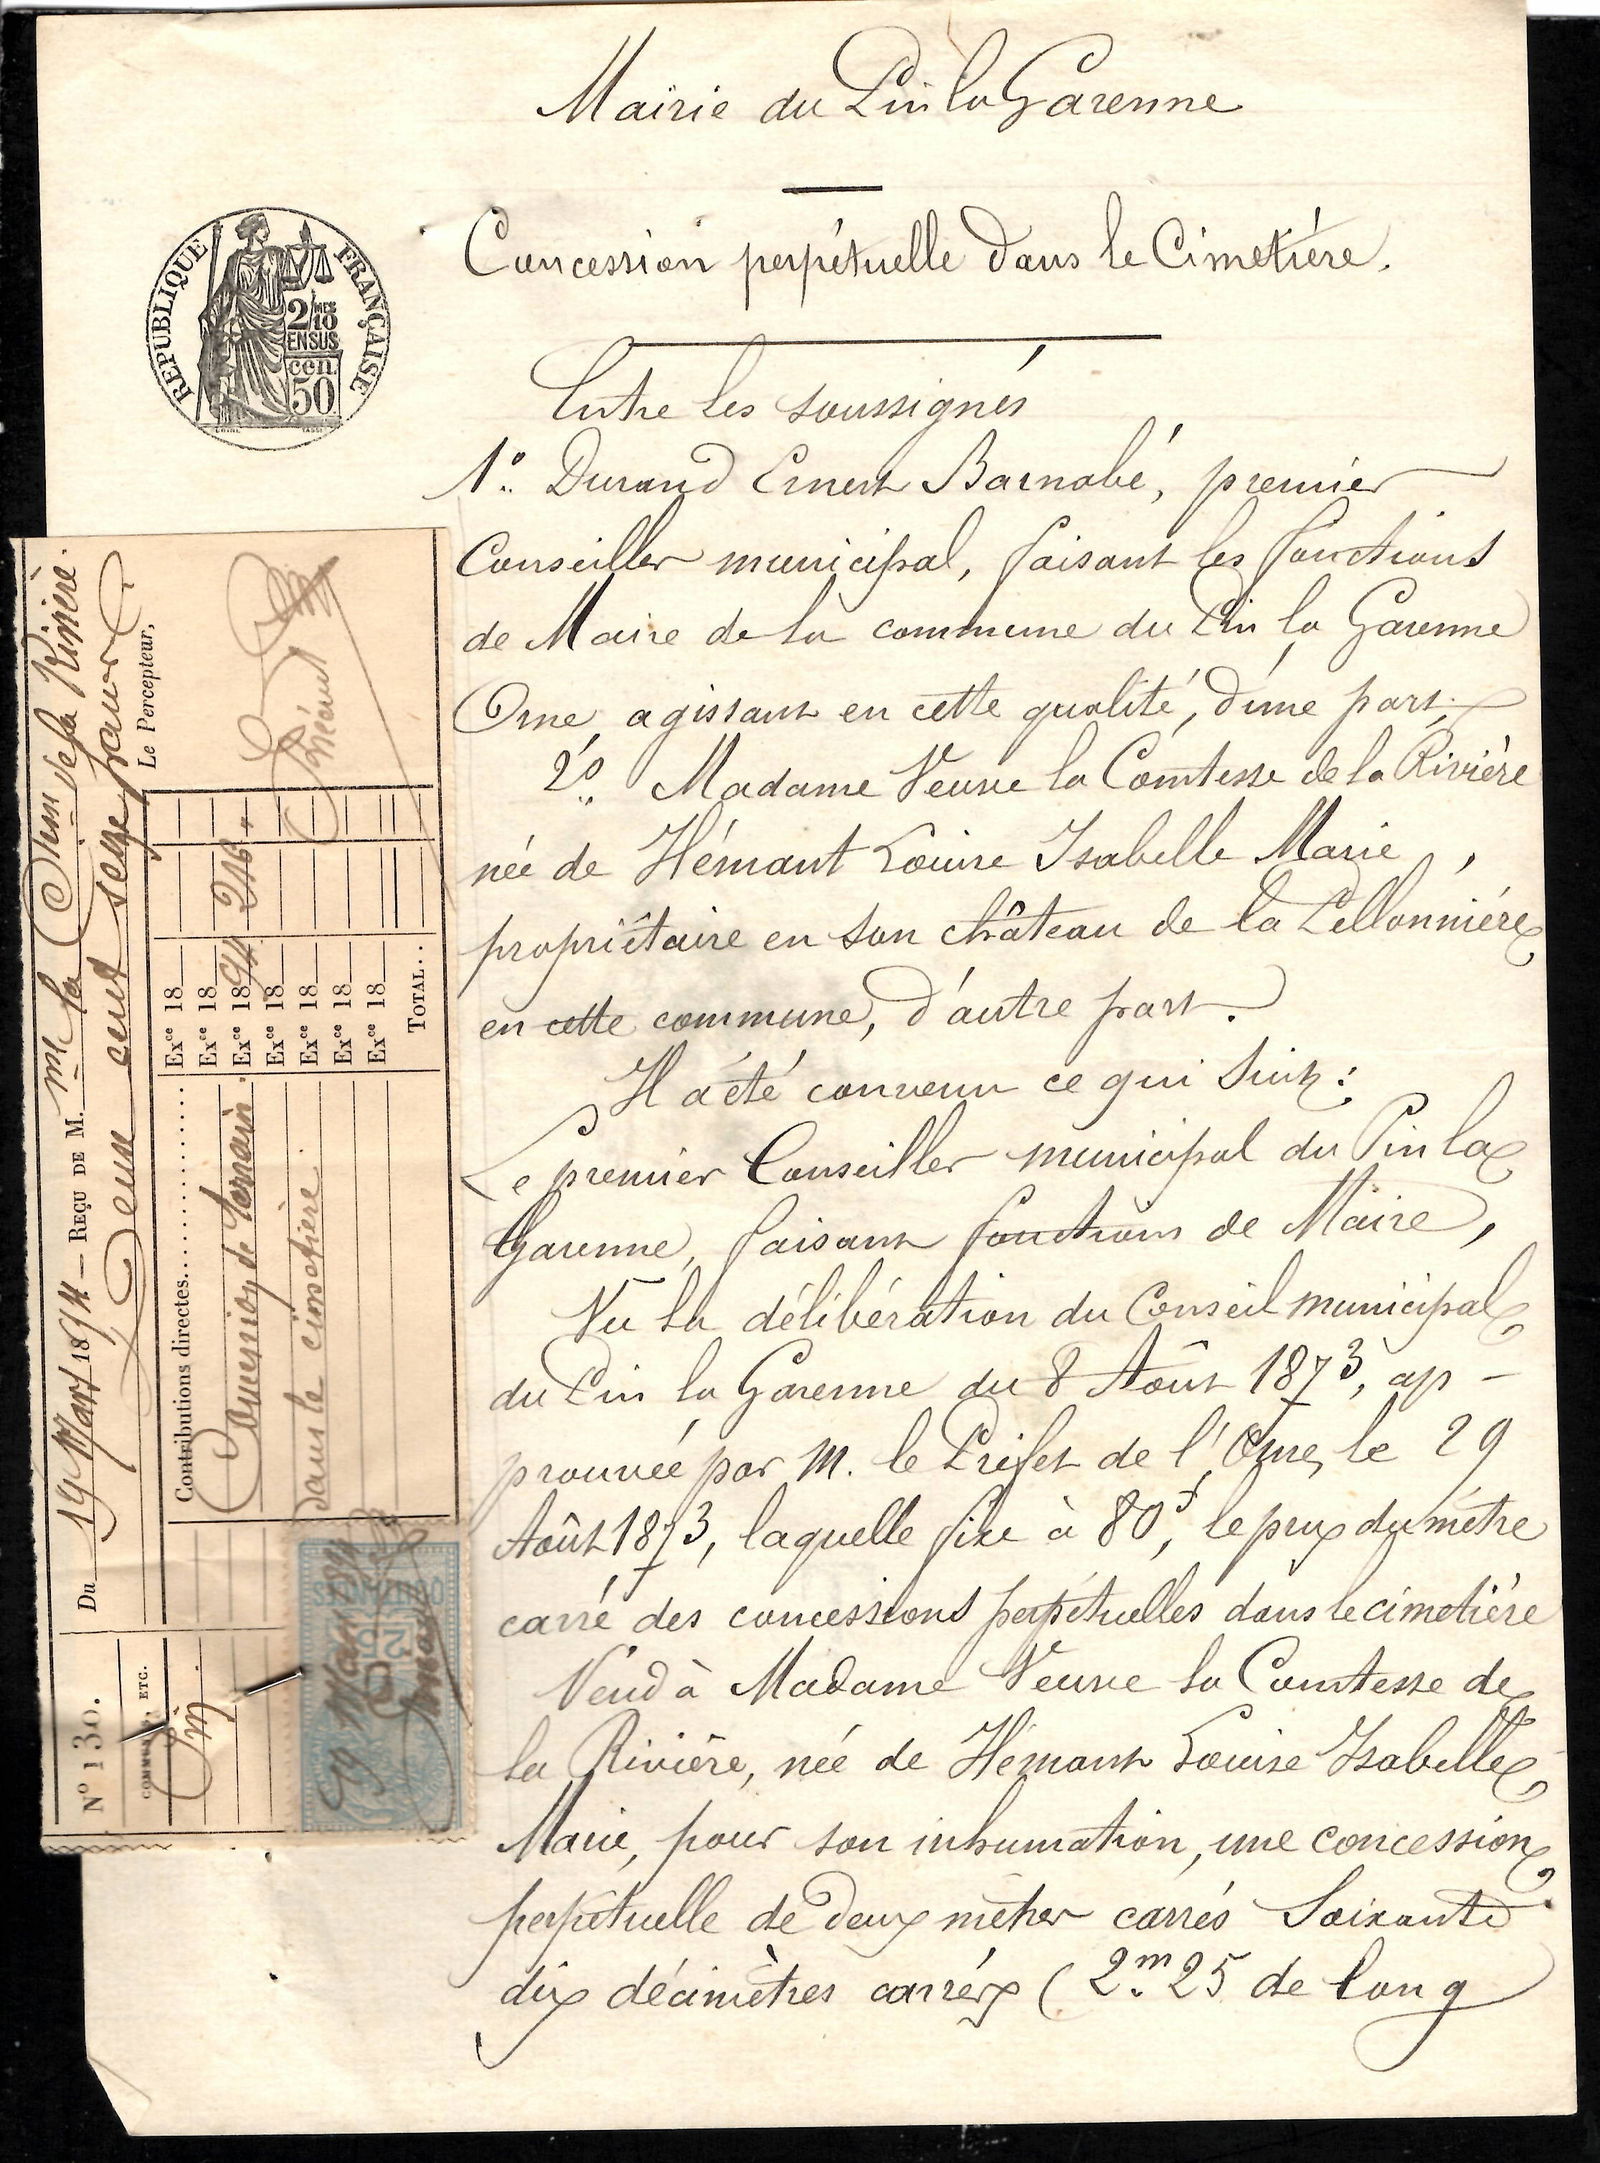 Mairie du Pin la Garenne
Concession perpétuelle dans le Cimetière.
REPUBLIQUE FRANÇAISE
2/10 MES
EN SUS
cen.
50
Entre les soussignés
1º Durand Ernest Barnabé, premier
Conseiller municipal, faisant les fonctions
de Maire de la commune du Pin la Garenne
Orne, agissant en cette qualité, d'une part,
2º Madame Veuve la Comtesse de la Rivière
née de Hémant Louise Isabelle Marie,
propriétaire en son château de la Pellonnière
en cette commune, d'autre part.
Il a été convenu ce qui suit:
Le premier Conseiller municipal du Pin la
Garenne, faisant fonctions de Maire,
Vu la délibération du Conseil municipal
du Pin la Garenne du 8 Août 1873, ap-
prouvée par M. le Préfet de l'Orne, le 29
Août 1873, laquelle fixe à 80f, le prix du mètre
carré des concessions perpétuelles dans le cimetière
Vend à Madame Veuve la Comtesse de
la Rivière, née de Hémant Louise Isabelle
Marie, pour son inhumation, une concession
perpétuelle de deux mètres carrés Soixante
dix décimètres carrés (2m.25 de long
Nº 130.
COMMUNE, ETC.
Pin
Du 19 Mars 1894 — REÇU DE M. me la Ctesse de la Rivière
Deux cent seize francs
Le Percepteur,
Contributions directes
Exce 18
Exce 18
Concession de terrain Exce 1894 216
dans le cimetière Exce 18
Exce 18
Exce 18
Exce 18
TOTAL
QUITTANCES
25
19 Mars 94